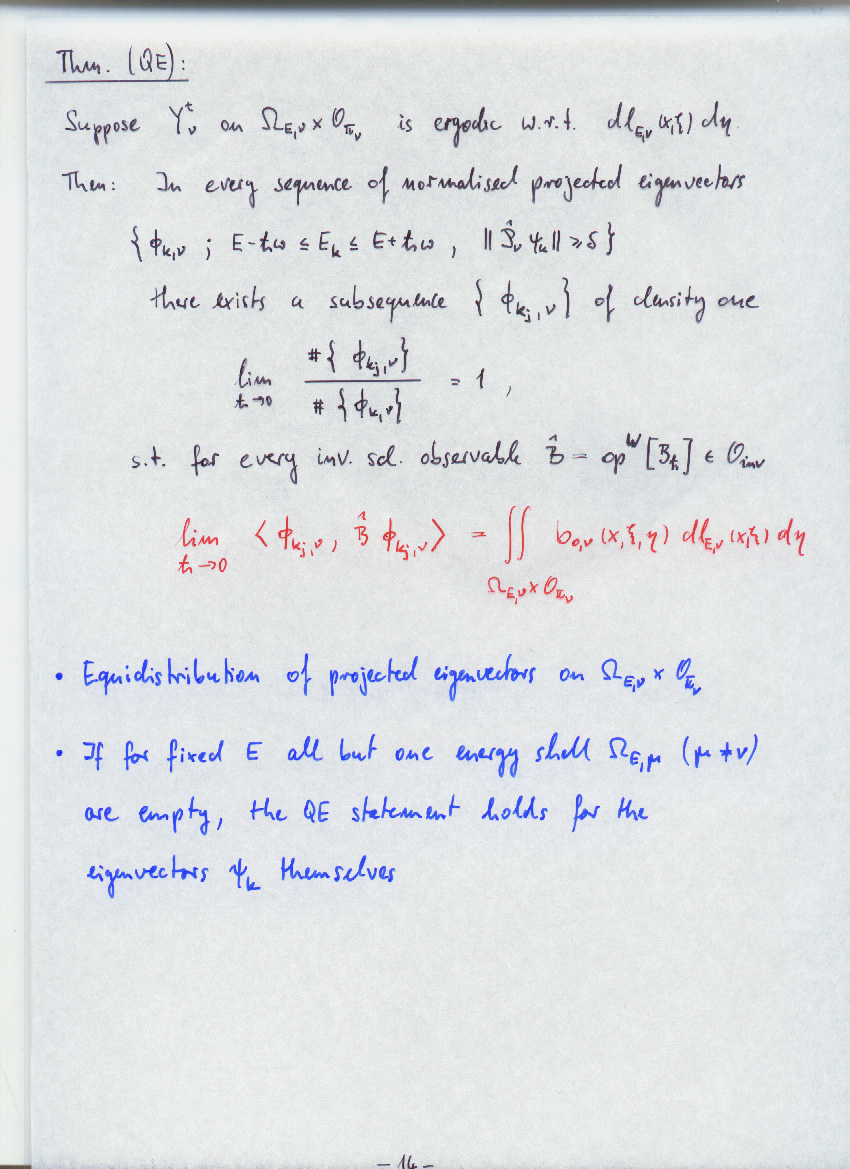 Thm. (QE):
Suppose Y_ν^t on Ω_{E,ν} × O_{π_ν} is ergodic w.r.t. dl_{E,ν}(x,ξ) dη.
Then: In every sequence of normalised projected eigenvectors
{ϕ_{k,ν} ; E-ħω ≤ E_k ≤ E+ħω, ‖P̂_ν ψ_k‖ ≥ δ}
there exists a subsequence {ϕ_{k_j,ν}} of density one
lim_{ħ→0} #{ϕ_{k_j,ν}} / #{ϕ_{k,ν}} = 1 ,
s.t. for every inv. scl. observable B̂ = op^W[B_ħ] ∈ O_{inv}
lim_{ħ→0} ⟨ϕ_{k_j,ν}, B̂ ϕ_{k_j,ν}⟩ = ∬_{Ω_{E,ν} × O_{π_ν}} b_{0,ν}(x,ξ,η) dl_{E,ν}(x,ξ) dη
• Equidistribution of projected eigenvectors on Ω_{E,ν} × O_{π_ν}
• If for fixed E all but one energy shell Ω_{E,μ} (μ≠ν)
are empty, the QE statement holds for the
eigenvectors ψ_k themselves
- 14 -